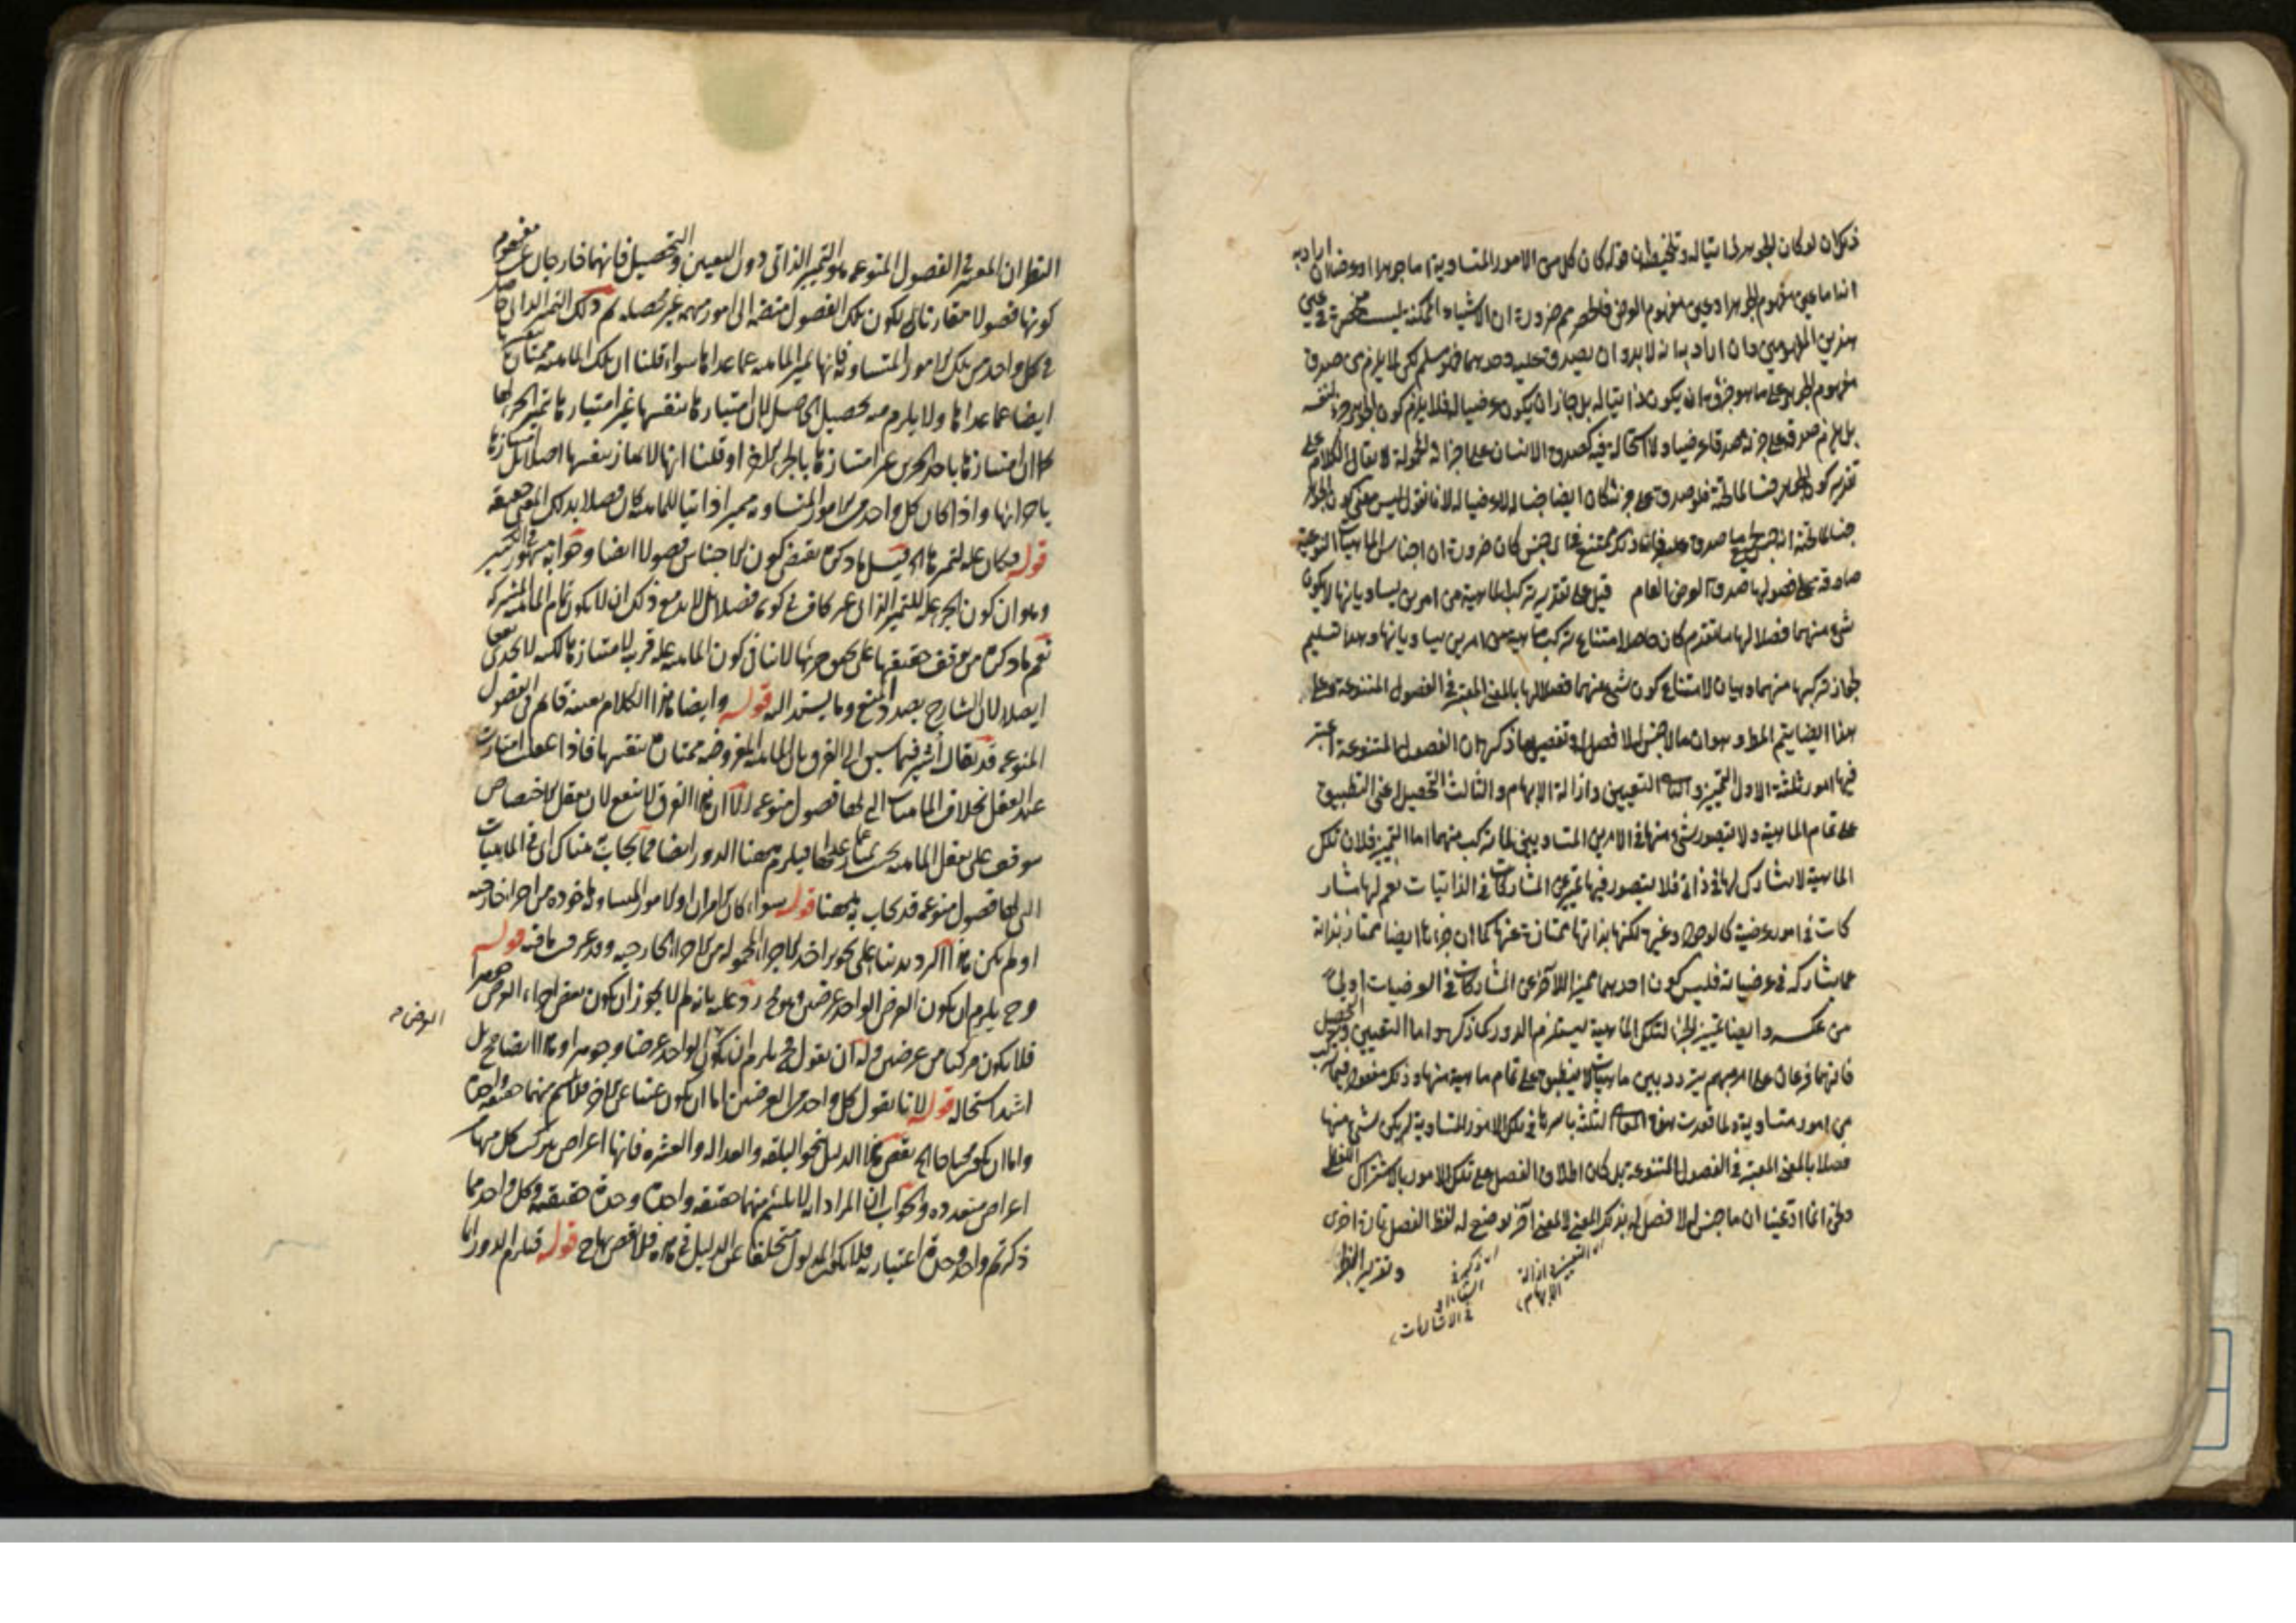 ذكر ان لو كان الجوهر ذاتيا له وتلخيصه ان قوله كان كل من الامور المتساوية اما جوهرا او عرضا ان اراد به
انه اما عين مفهوم الجوهر او عين مفهوم العرض فالحصر مم ضرورة ان الاشياء الممكنة ليست منحصرة في عين
هذين المفهومين وان اراد به انه لا بد وان يصدق عليه احدهما فهو مسلم لكن لا يلزم من صدق
مفهوم الجوهر على ما هو جزؤه ان يكون ذاتيا له بل جاز ان يكون عرضيا له فلا يلزم كون الجوهر جزء لنفسه
بل يلزم صدقه على جزئه صدقا عرضيا ولا استحالة فيه كصدق الانسان على اجزائه المحمولة لا يقال الكلام على
تقدير كون الجوهر جنسا لما تحته فلو صدق على جزئه لكان ايضا جنسا له لا عرضيا له لانا نقول ليس معنى كون الجوهر
جنسا لما تحته انه جنس لجميع ما صدق عليه فان ذلك ممتنع في اي جنس كان ضرورة ان اجناس الماهيات النوعية
صادقة على فصولها صدق العرض العام قيل على تقدير تركب الماهية من امرين يساويانها لا يكون
شيء منهما فصلا لها ما تقدم كان حاصله امتناع تركب ماهية من امرين يساويانها وهذا تسليم
لجواز تركبها منهما وبيان لامتناع كون شيء منهما فصلا لها بالمعنى المعتبر في الفصول المتنوعة وعلى
هذا ايضا يتم المط وهو ان ما لا جنس له لا فصل له وتفصيل ما ذكره ان الفصول المتنوعة اعتبر
فيها امور ثلثة الاول التمييز والثاني التعيين وازالة الابهام والثالث التحصيل اعني التطبيق
على تمام الماهية ولا يتصور شيء منها في الامرين المتساويين لما تركب منهما اما التمييز فلان تلك
الماهية لا مشارك لها في ذاتي فلا يتصور فيها تمييز عن المشاركات في الذاتيات نعم لها مشار
كات في امور عرضية كالوجود وغيره لكنها بذاتها ممتازة عنها كما ان جزءها ايضا ممتاز بذاته
عما يشاركه في عرضياته فليس كون احدهما مميزا للآخر عن المشاركات في العرضيات اولى
من عكسه وايضا تمييز الجزء لتلك الماهية يستلزم الدور كما ذكره واما التعيين والتحصيل
فانهما فرعان على امر مبهم يتردد بين ماهيات لا ينطبق على تمام ماهية منها وذلك مفقود فيما تركب
من امور متساوية ولما فقدت هذه المعاني الثلثة باسرها في تلك الامور المتساوية لم يكن شيء منها
فصلا بالمعنى المعتبر في الفصول المتنوعة بل كان اطلاق الفصل على تلك الامور بالاشتراك اللفظي
ونحن انما ادعينا ان ما لا جنس له لا فصل له بذلك المعنى لا لمعنى آخر يوضع له لفظ الفصل تارة اخرى
وتقرير النظر
اي التعيين وازالة الابهام
اي ذكره في الشفاء او في الاشارات
النظر ان المعتبر في الفصول المنوعة هو التمييز الذاتي دون التعيين والتحصيل فانهما خارجان عن مفهوم
كونها فصولا مقارنان لكون تلك الفصول منضمة الى امور مبهمة غير محصلة ثم ذلك التمييز الذاتي حاصل
في كل واحد من تلك الامور المتساوية فانها تميز الماهية عما عداها سواء قلنا ان تلك الماهية ممتازة بنفسها
ايضا عما عداها ولا يلزم منه تحصيل الحاصل لان امتيازها بنفسها غير امتيازها بتمييز الجزء لها
كما ان امتيازها باحد الجزئين غير امتيازها بالجزء الاخر او قلنا انها لا تمتاز بنفسها اصلا بل امتيازها
باجزائها واذا كان كل واحد من الامور المتساوية مميزا ذاتيا للماهية كان فصلا بذلك المعنى حقيقة
قوله فكان علة لتميزها الخ قيل ما ذكره يقتضي كون الاجناس فصولا ايضا وجوابه مشهور في الكتب
وهو ان كون الجزء علة للتميز الذاتي غير كاف في كونه فصلا بل لا بد مع ذلك ان لا يكون تمام الماهية المشتركة
نعم ما ذكره من توقف حقيقتها على مجموع جزئيها لا ينافي كون الماهية علة قريبة لامتيازها لكنه لا يجدي نفعا
ايضا لان الشارح بصدد المنع وما يستند اليه قوله وايضا هذا الكلام بعينه قائم في الفصول
المنوعة قد يقال اشير فيما سبق الى الفرق بان الماهية المفروضة ممتازة بنفسها فاذا عقلت امتازت
عند العقل بخلاف الماهيات التي لها فصول منوعة الا ان هذا الفرق لا ينفع لان تعقل الاختصاص
موقوف على تعقل الماهية بحيث تمتاز عما عداها فيلزم ههنا الدور ايضا فما يجاب هناك اي في الماهيات
التي لها فصول منوعة قد يجاب به ههنا قوله سواء كان الامران او الامور المتساوية ماخوذة من اجزاء خارجية
او لم يكن هذا الترديد بناء على تجويز اخذ الاجزاء المحمولة من الاجزاء الخارجية وقد عرفت ما فيه قوله
وح يلزم ان يكون العرض الواحد عرضين وهو مح رد عليه بانه لم لا يجوز ان يكون بعض اجزاء العرض جوهرا
فلا يكون مركبا من عرضين وله ان يقول فح يلزم ان يكون الواحد عرضا وجوهرا وهذا ايضا مح بل
اشد استحالة قوله لانا نقول كل واحد من العرضين اما ان يكون غنيا عن الاخر فلا يلتئم منهما حقيقة واحدة
واما ان يكون محتاجا الخ نقض هذا الدليل بنحو البلقة والعدالة والعشرة فانها اعراض يتركب كل منها من
اعراض متعددة والجواب ان المراد انه لا يلتئم منهما حقيقة واحدة وحدة حقيقية وكل واحد مما
ذكرتم واحد وحدة اعتبارية فلا يكون المدلول متخلفا عن الدليل في هذه فلا نقض بها ح قوله فيلزم الدور انما
العرض م